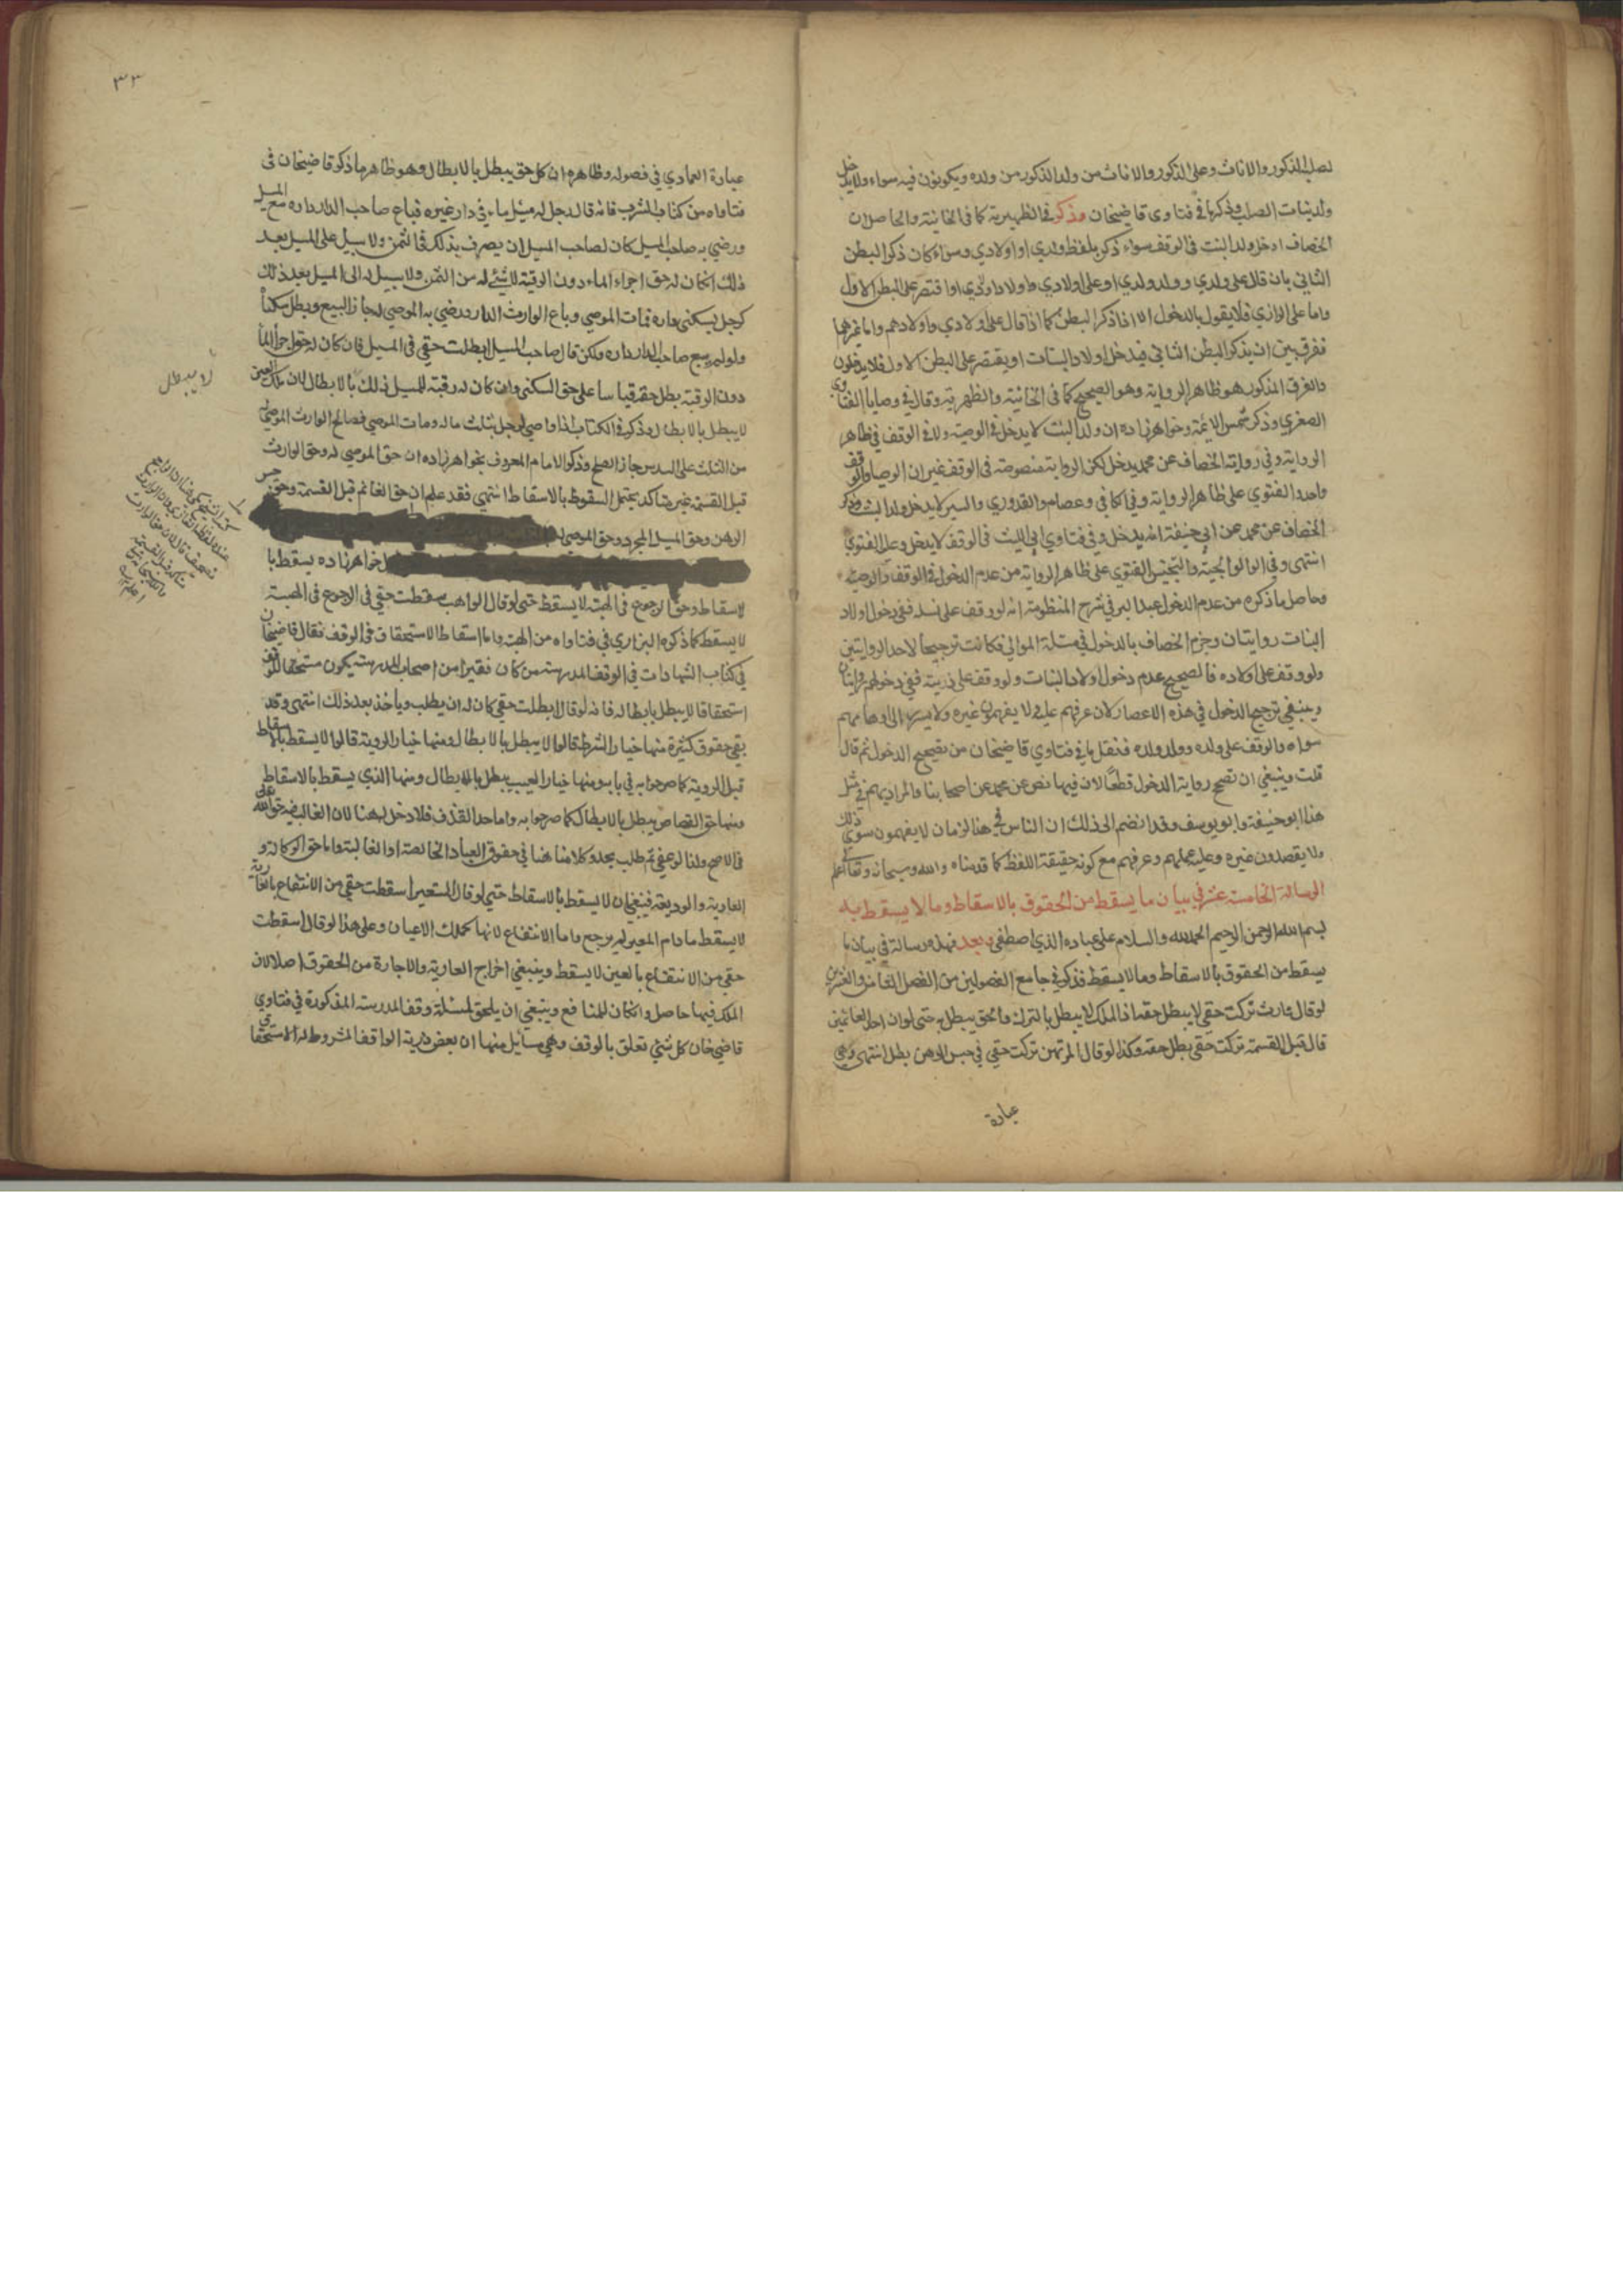 لصلبه الذكور والاناث وعلى الذكور والاناث من ولد الذكور من ولده ويكونون فيه سواء ولا يدخل
ولد بنات الصلب وذكرها في فتاوى قاضيخان وذكر في الظهيرية كما في الخانية والحاصل ان
الخصاف ادخل ولد البنت في الوقف سواء ذكر بلفظ ولدي او اولادي وسواء كان ذكر البطن
الثاني بان قال على ولدي وولد ولدي او على اولادي واولاد اولادي او اقتصر على البطن الاول
واما على الرازي فلا يقول بالدخول الا اذا ذكر البطن كما اذا قال على اولادي واولادهم واما غيرهما
ففرق بين ان يذكر البطن الثاني فيدخل اولاد البنات او يقتصر على البطن الاول فلا يدخلون
والفرق المذكور هو ظاهر الرواية وهو الصحيح كما في الخانية والظهيرية وقال في وصايا الفتاوى
الصغرى وذكر شمس الائمة وخواهر زاده ان ولد البنت لا يدخل في الوصية ولا في الوقف في ظاهر
الرواية وفي رواية الخصاف عن محمد يدخل لكن الرواية منصوصة في الوقف غير ان الوصايا والوقف
واحد والفتوي على ظاهر الرواية وفي الكافي وعصام والقدوري والسير لا يدخل ولد البنت وذكر
الخصاف عن محمد عن ابي حنيفة انه يدخل وفي فتاوي ابي الليث في الوقف لا يدخل وعليه الفتوي
انتهى وفي الوالوالجية والتجنيس الفتوي على ظاهر الرواية من عدم الدخول في الوقف والوصية
وحاصل ما ذكره من عدم الدخول عبد البر في شرح المنظومة انه لو وقف على نسله ففي دخول اولاد
البنات روايتان وجزم الخصاف بالدخول في مسئلة الموالي فكانت ترجيحا لاحد الروايتين
ولو وقف على اولاده فالصحيح عدم دخول اولاد البنات ولو وقف على ذريته ففي دخولهم روايتان
وينبغي ترجيح الدخول في هذه الاعصار لان عرفهم عليه ولا يفهمون غيره ولا يسري الى اوهامهم
سواه والوقف على ولده وولد ولده فنقل ما في فتاوي قاضيخان من تصحيح الدخول ثم قال
قلت وينبغي ان تصح رواية الدخول قطعا لان فيها نص عن محمد عن اصحابنا والمراد بهم في مثل
هذا ابو حنيفة وابو يوسف وقد انضم الى ذلك ان الناس في هذا الزمان لا يفهمون سوى ذلك
ولا يقصدون غيره وعليه عملهم وعرفهم مع كونه حقيقة اللفظ كما قدمناه والله سبحانه وتعالى اعلم
الرسالة الخامسة عشر في بيان ما يسقط من الحقوق بالاسقاط وما لا يسقط به
بسم الله الرحمن الرحيم الحمد لله والسلام على عباده الذي اصطفى وبعد فهذه رسالة في بيان ما
يسقط من الحقوق بالاسقاط وما لا يسقط فذكر في جامع الفصولين من الفصل الثامن والعشرين
لو قال وارث تركت حقي لا يبطل حقه اذا الملك لا يبطل بالترك والحق يبطل به حتى لو ان احد الغانمين
قال قبل القسمة تركت حقي بطل حقه وكذا لو قال المرتهن تركت حقي في حبس الرهن بطل انتهى وهي
عبارة
٣٣
عبارة العمادي في فصوله وظاهره ان كل حق يبطل بالابطال وهو ظاهر ما ذكره قاضيخان في
فتاواه من كتاب الشرب فانه قال رجل له مسيل ماء في دار غيره فباع صاحب الدار داره مع المسيل
ورضي به صاحب المسيل كان لصاحب المسيل ان يصرف بذلك في الثمن ولا سبيل على المسيل بعد
ذلك ان كان له حق اجراء الماء دون الرقبة لا شئ له من الثمن ولا سبيل له الى المسيل بعد ذلك
كرجل يسكنى داره فمات الموصي وباع الوارث الدار ورضي به الموصي له جاز البيع وبطل سكناه
ولو لم يبع صاحب الدار داره ولكن قال صاحب المسيل ابطلت حقي في المسيل فان كان له حق اجراء الماء
دون الرقبة بطل حقه قياسا على حق السكنى وان كان له رقبة المسيل ذلك بالابطال لان ملك العين
لا يبطل بالابطال وذكر في الكتاب اذا اوصى لرجل بثلث ماله ومات الموصي فصالح الوارث الموصى
من الثلث على السدس جاز الصلح وذكر الامام المعروف بخواهر زاده ان حق الموصي له وحق الوارث
قبل القسمة غير متاكد يحتمل السقوط بالاسقاط انتهي فقد علم ان حق الغانم قبل القسمة وحق حبس
الرهن وحق المسيل المجرد وحق الموصى له
خواهر زاده يسقط با
لاسقاط وحق الرجوع في الهبة لا يسقط حتى لو قال الواهب سقطت حقي في الرجوع في الهبة
لا يسقط كما ذكره البزازي في فتاواه من الهبة واما اسقاط الاستحقاق في الوقف فقال قاضيخان
في كتاب الشهادات في الوقف المدرسة من كان فقيرا من اصحاب المدرسة يكون مستحقا للوقف
استحقاقا لا يبطل بابطاله فانه لو قال ابطلت حقي كان له ان يطلب وياخذ بعد ذلك انتهى وقد
بقي حقوق كثيرة منها خيار الشرط قالوا لا يبطل بالابطال ومنها خيار الروية قالوا لا يسقط بالاسقاط
قبل الروية كما صرحوا به في بابه ومنها خيار العيب يبطل بالابطال ومنها الذي يسقط بالاسقاط
ومنها حق القصاص يبطل بالابطال كما صرحوا به واما حد القذف فلا دخل له هنا لان الغالب فيه حق الله تعالى
في الاصح ولذا لو عفي ثم طلب يحد وكلامنا هنا في حقوق العباد الخالصة او الغالبة واما حق الوكالة و
العارية والوديعة فينبغي ان لا يسقط بالاسقاط حتي لو قال المستعير اسقطت حقي من الانتفاع بالعارية
لا يسقط ما دام المعير لم يرجع واما الانتفاع لانها كملك الاعيان وعلى هذا لو قال اسقطت
حقي من الانتفاع بالعين لا يسقط وينبغي اخراج العارية والاجارة من الحقوق اصلا لان
الملك فيها حاصل وان كان للمنافع وينبغي ان يلحق لمسئلة وقف المدرسة المذكورة في فتاوي
قاضي خان كل شئ تعلق بالوقف وهي مسائل منها ان بعض ذرية الواقف المشروط له الاستحقاق
لا يبطل